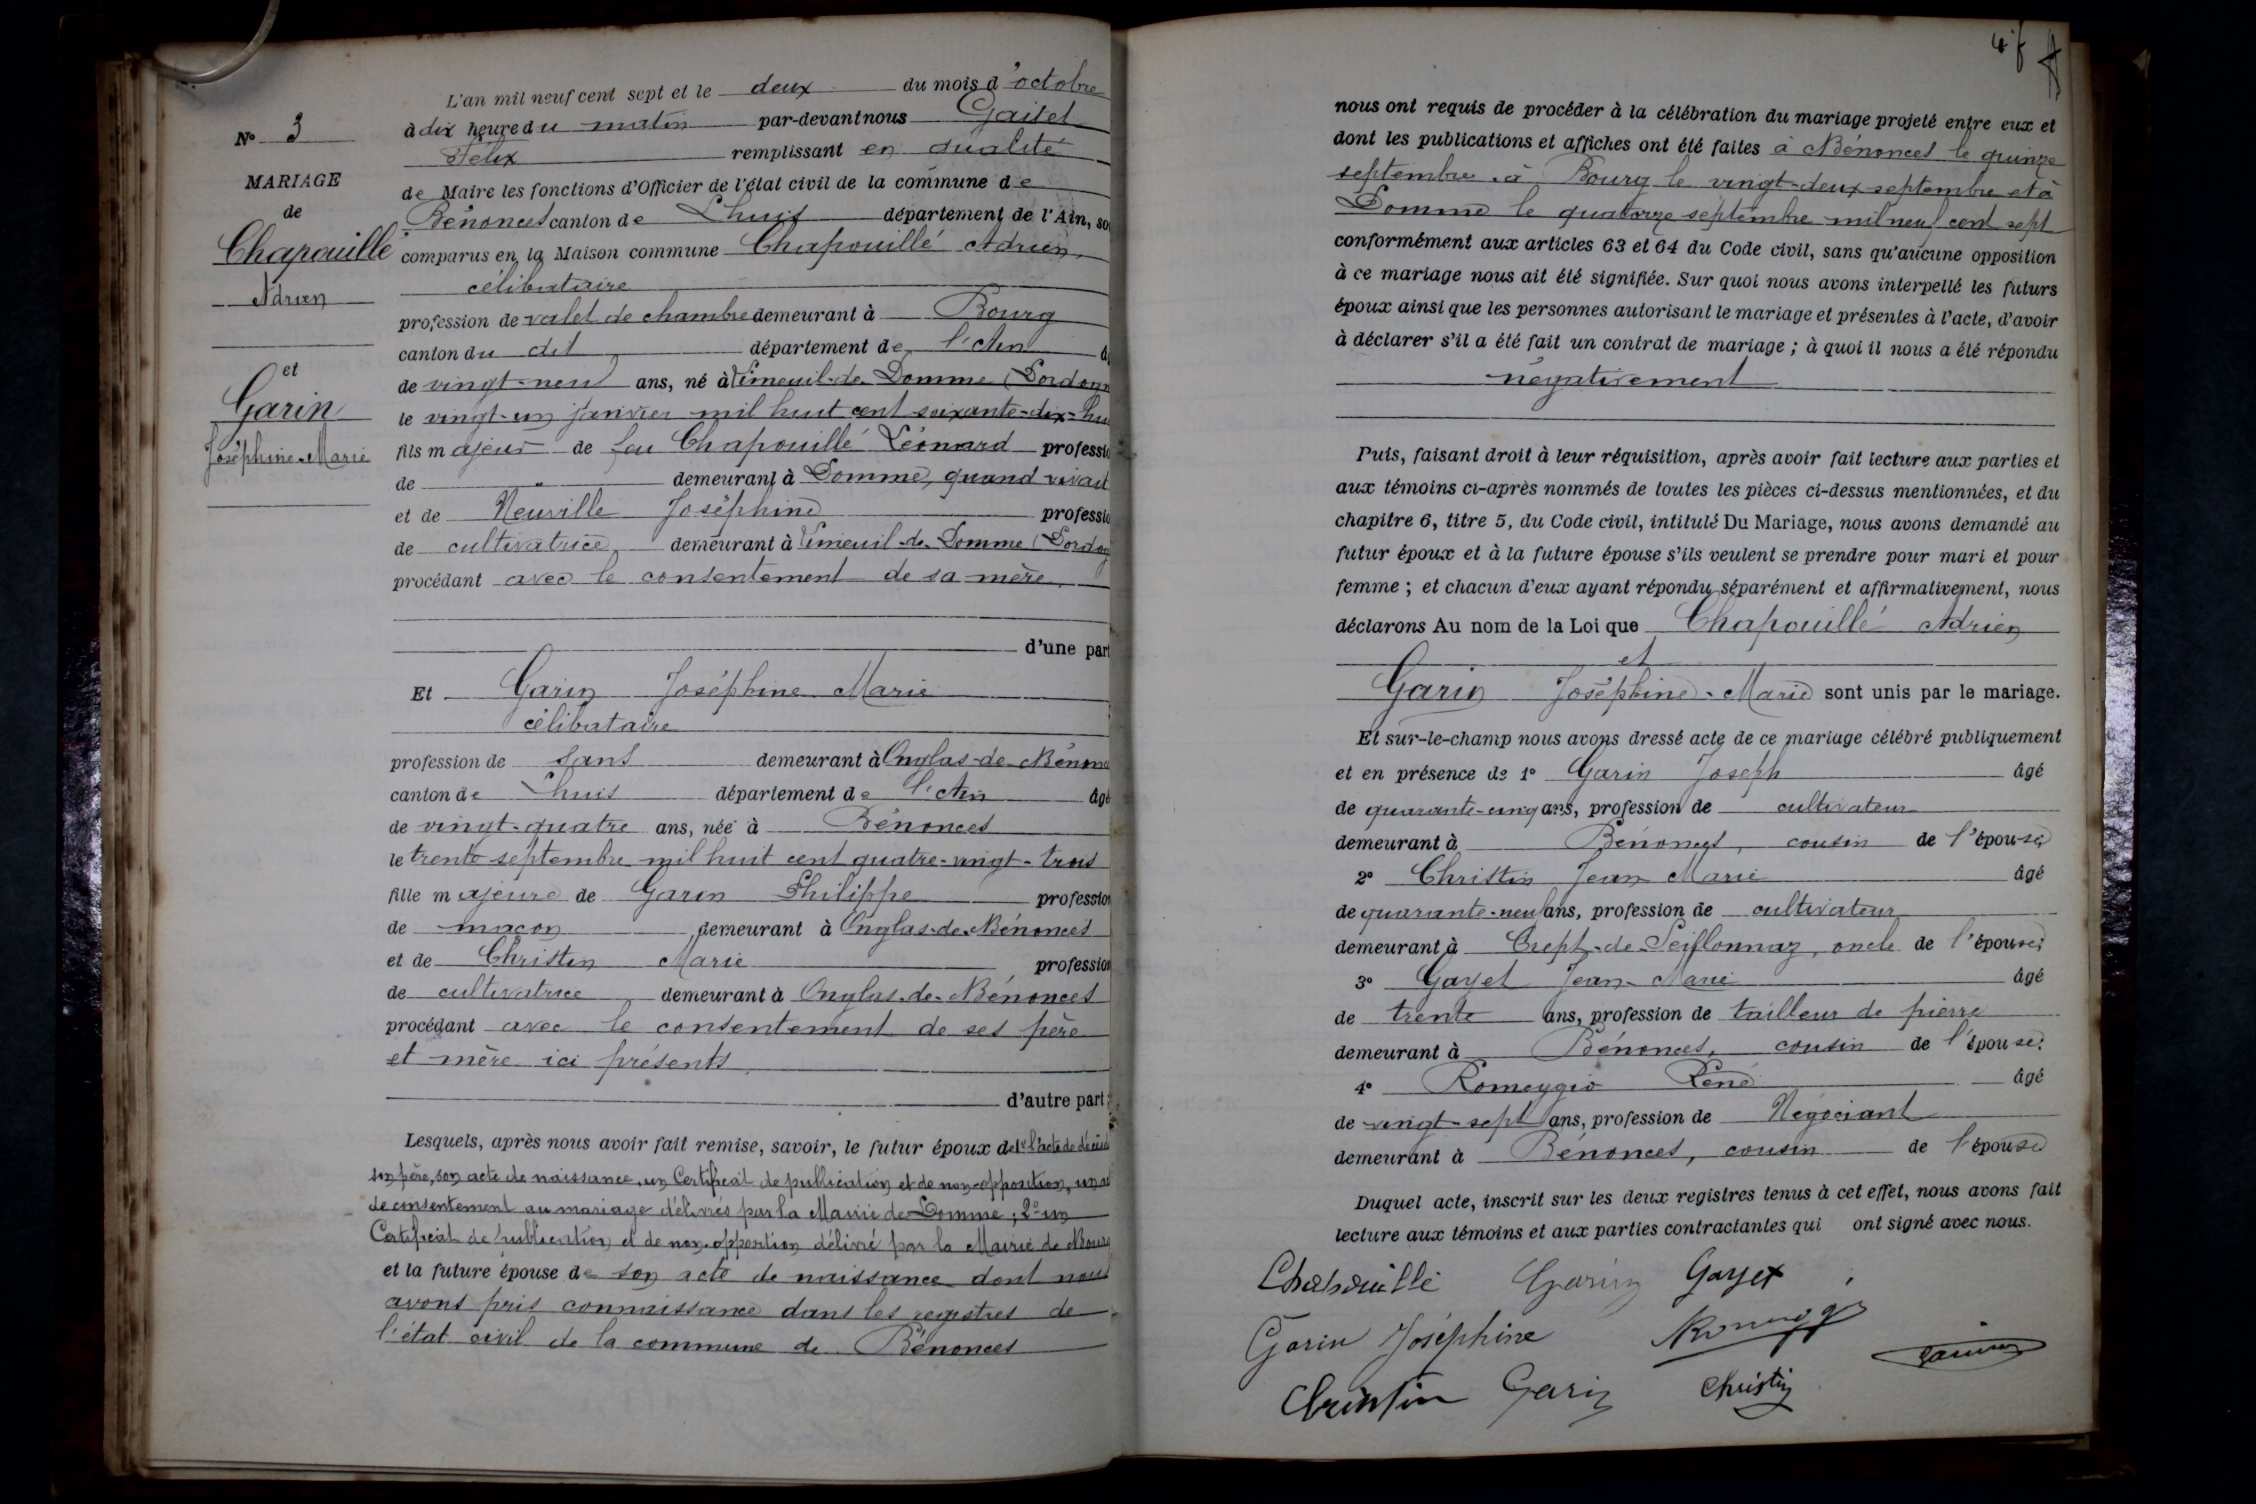 N° 3
MARIAGE
de
Chapouillé
Adrien
et
Garin
Joséphine-Marie
L'an mil neuf cent sept et le deux du mois d'octobre
à dix heure du matin par-devant nous
Félix remplissant en qualité
de Maire les fonctions d'Officier de l'état civil de la commune de
Bénonces canton de Lhuis département de l'Ain, so
comparus en la Maison commune Chapouillé Adrien,
célibataire
profession de valet de chambre demeurant à Bourg
canton du dit département de l'Ain
de vingt-neuf ans, né à de Domme (Dordogn
le vingt-un janvier mil huit cent soixante-dix-hui
fils majeur de feu Chapouillé Léonard professio
de " demeurant à Domme, quand vivait
et de Neuville Joséphine professio
de cultivatrice demeurant à de Domme (Dordog
procédant avec le consentement de sa mère
d'une part
Et Garin Joséphine Marie
célibataire
profession de sans demeurant à Onglas-de-Bénonce
canton de Lhuis département de l'Ain âgé
de vingt-quatre ans, née à Bénonces
le trente septembre mil huit cent quatre-vingt-trois
fille majeure de Garin Philippe profession
de maçon demeurant à Onglas-de-Bénonces
et de Christin Marie profession
de cultivatrice demeurant à Onglas-de-Bénonces
procédant avec le consentement de ses père
et mère ici présents
d'autre part;
Lesquels, après nous avoir fait remise, savoir, le futur époux de 1° l'acte de décès
son père, son acte de naissance, un Certificat de publication et de non-opposition, un a
de consentement au mariage délivrés par la Mairie de Domme; 2° un
Certificat de publication et de non-opposition délivré par la Mairie de Bourg
et la future épouse de son acte de naissance dont nous
avons pris connaissance dans les registres de
l'état civil de la commune de Bénonces
nous ont requis de procéder à la célébration du mariage projeté entre eux et
dont les publications et affiches ont été faites à Bénonces le quinze
septembre, à Bourg le vingt-deux septembre et à
Domme le quatorze septembre mil neuf cent sept
conformément aux articles 63 et 64 du Code civil, sans qu'aucune opposition
à ce mariage nous ait été signifiée. Sur quoi nous avons interpellé les futurs
époux ainsi que les personnes autorisant le mariage et présentes à l'acte, d'avoir
à déclarer s'il a été fait un contrat de mariage; à quoi il nous a été répondu
négativement
Puis, faisant droit à leur réquisition, après avoir fait lecture aux parties et
aux témoins ci-après nommés de toutes les pièces ci-dessus mentionnées, et du
chapitre 6, titre 5, du Code civil, intitulé Du Mariage, nous avons demandé au
futur époux et à la future épouse s'ils veulent se prendre pour mari et pour
femme; et chacun d'eux ayant répondu séparément et affirmativement, nous
déclarons Au nom de la Loi que Chapouillé Adrien
et
Garin Joséphine-Marie sont unis par le mariage.
Et sur-le-champ nous avons dressé acte de ce mariage célébré publiquement
et en présence de 1° Garin Joseph âgé
de quarante-cinq ans, profession de cultivateur
demeurant à Bénonces, cousin de l'épouse;
2° Christin Jean Marie âgé
de quarante-neuf ans, profession de cultivateur
demeurant à Crept-de-Seillonnaz, oncle de l'épouse;
3° Gayet Jean-Marie âgé
de trente ans, profession de tailleur de pierre
demeurant à Bénonces, cousin de l'épouse;
4° Romeggio René âgé
de vingt-sept ans, profession de Négociant
demeurant à Bénonces, cousin de l'épouse
Duquel acte, inscrit sur les deux registres tenus à cet effet, nous avons fait
lecture aux témoins et aux parties contractantes qui ont signé avec nous.
Chapouillé Garin Gayet
Garin Joséphine
Christin Garin Christin